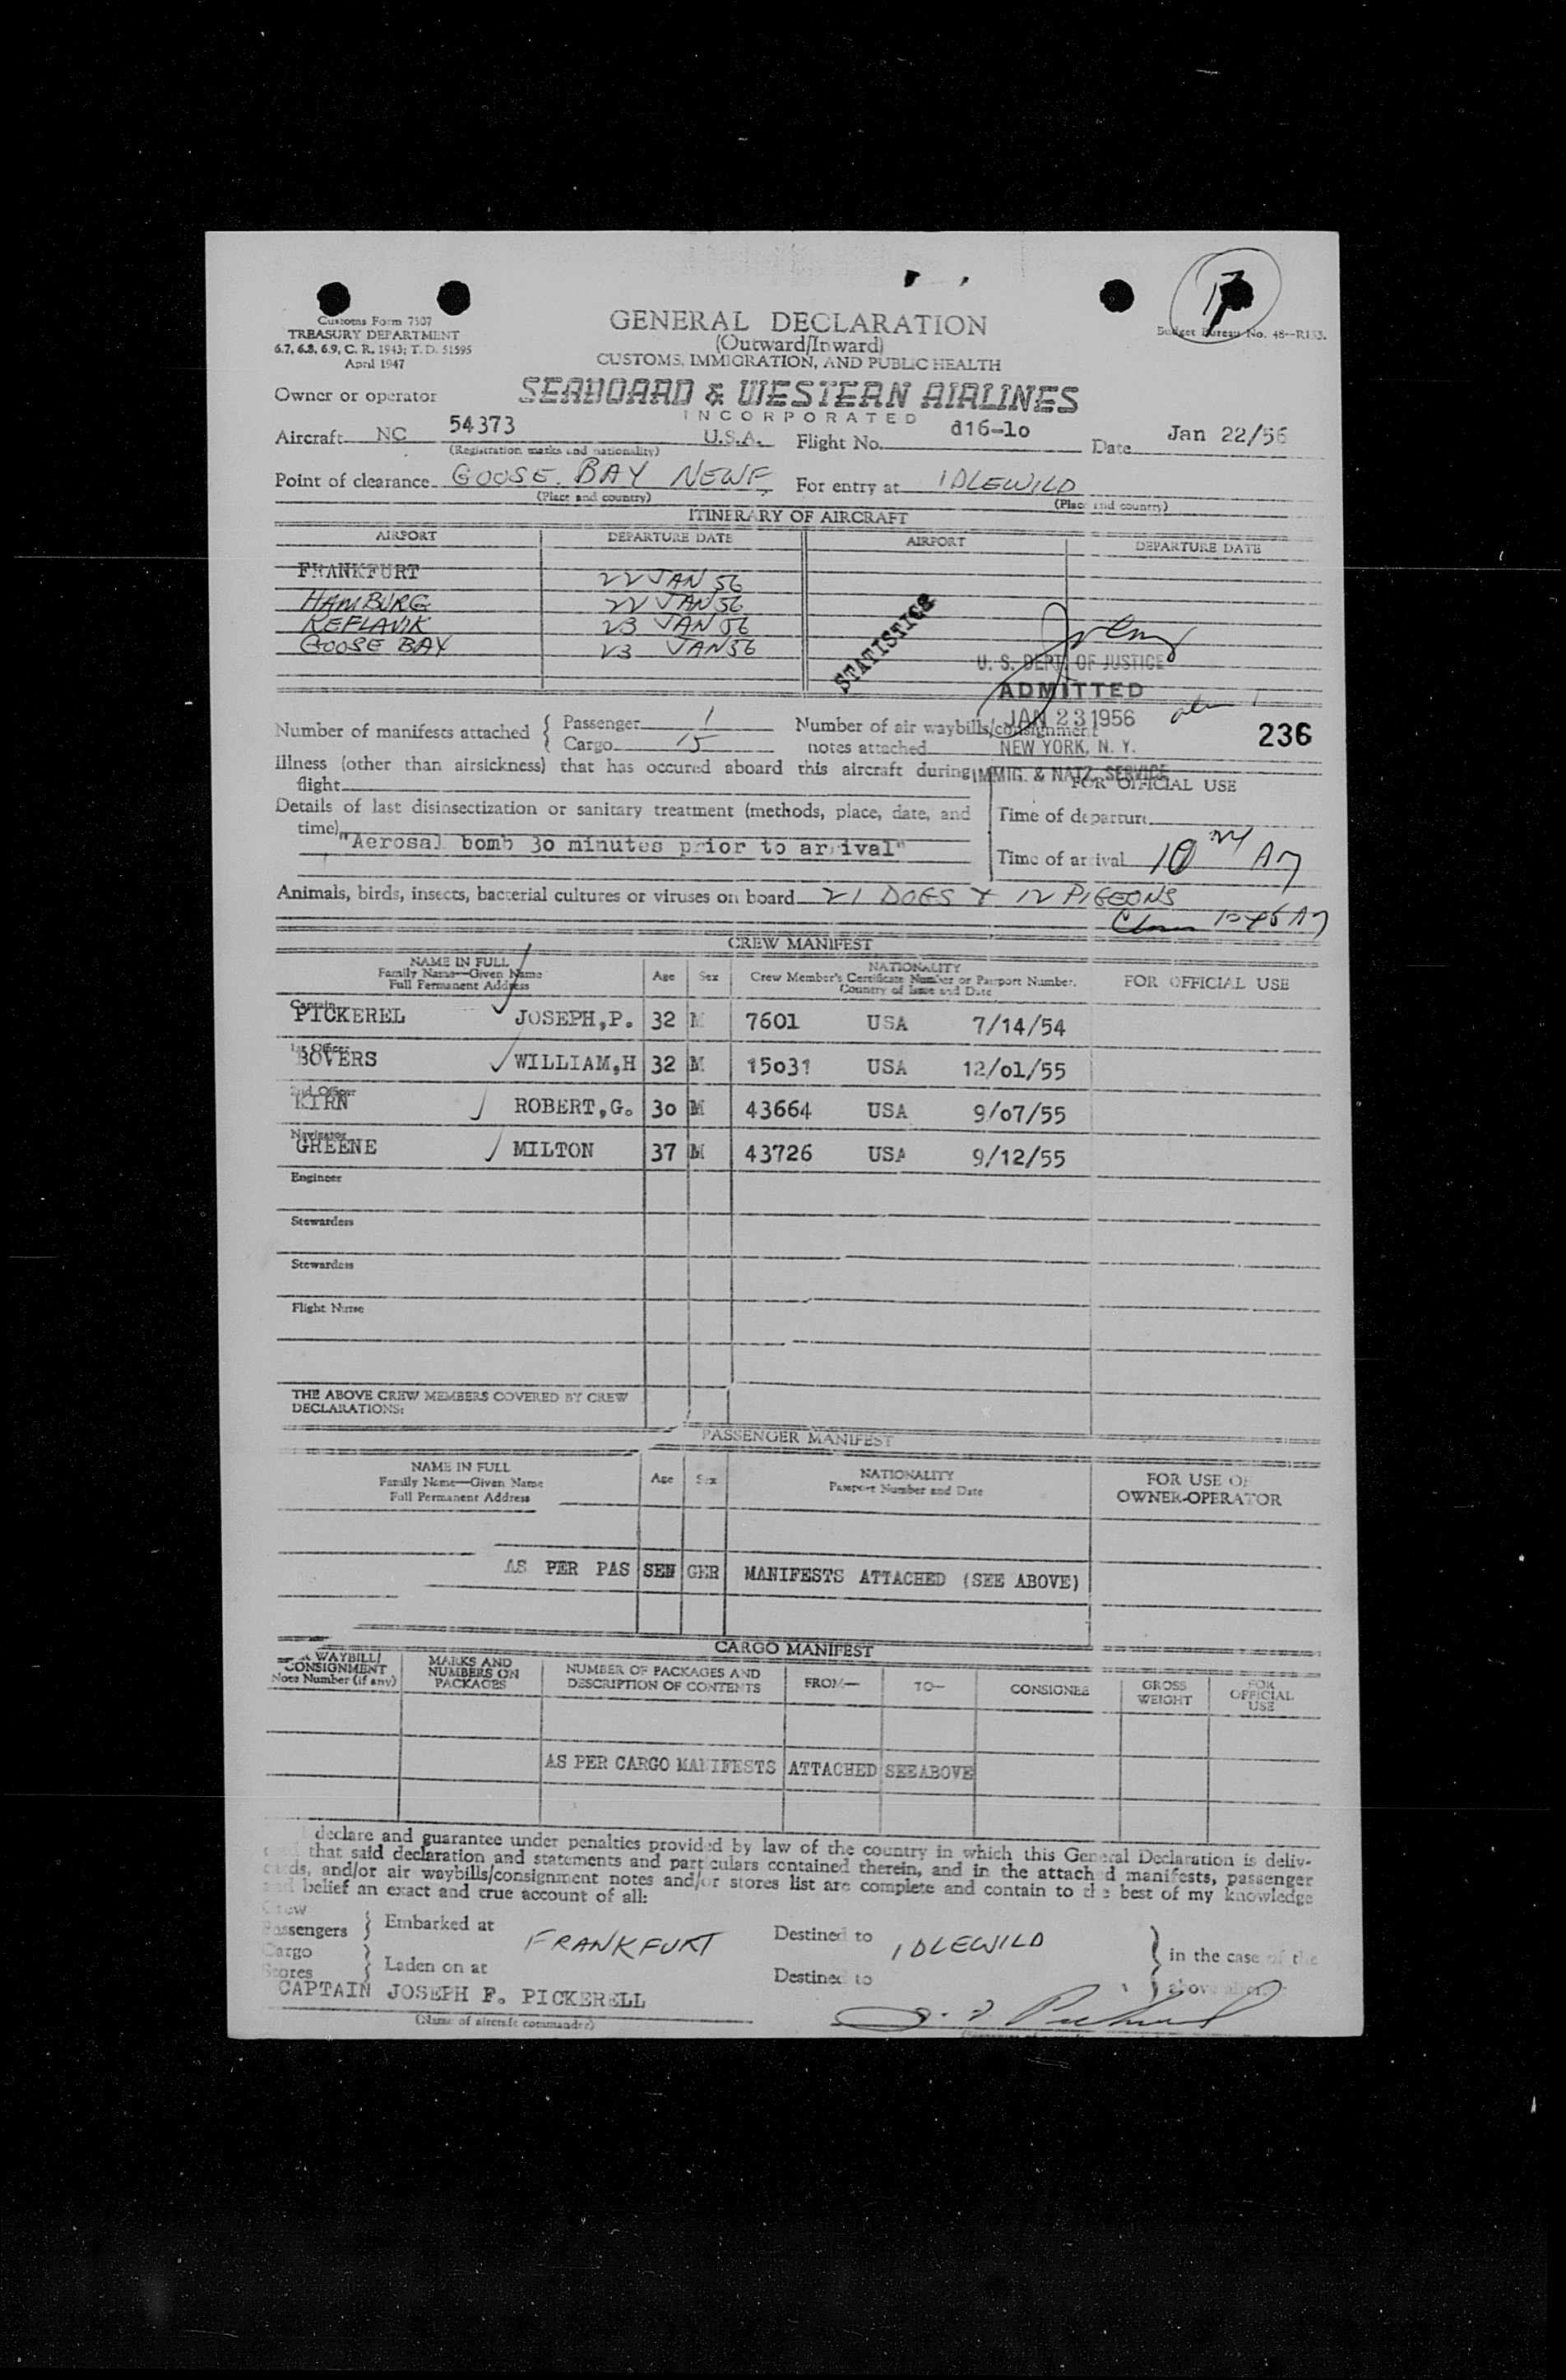 Customs Form 7507
TREASURY DEPARTMENT
6.7, 6.8, 6.9, C. R. 1943; T. D. 51595
April 1947
GENERAL DECLARATION
(Outward/Inward)
CUSTOMS, IMMIGRATION, AND PUBLIC HEALTH
Budget Bureau No. 48--R133.
Owner or operator
SEABOARD & WESTERN AIRLINES
INCORPORATED
Aircraft NC 54373 U.S.A. Flight No. d16-1o Date Jan 22/56
(Registration marks and nationality)
Point of clearance GOOSE BAY NEWF. For entry at IDLEWILD
(Place and country) (Place and country)
ITINERARY OF AIRCRAFT
AIRPORT DEPARTURE DATE AIRPORT DEPARTURE DATE
FRANKFURT 22 JAN 56
HAMBURG 22 JAN 56
KEFLAVIK 23 JAN 56
GOOSE BAY 23 JAN 56
STATISTICS
U. S. DEPT. OF JUSTICE
ADMITTED
JAN 23 1956
NEW YORK, N. Y.
IMMIG. & NATZ. SERVICE
236
Number of manifests attached { Passenger 1
Cargo 15
Number of air waybills/consignment
notes attached
Illness (other than airsickness) that has occured aboard this aircraft during
flight
FOR OFFICIAL USE
Details of last disinsectization or sanitary treatment (methods, place, date, and
time) "Aerosal bomb 3o minutes prior to arrival"
Time of departure
Time of arrival 10 AM
Animals, birds, insects, bacterial cultures or viruses on board 21 DOGS & 12 PIGEONS
1045 AM
CREW MANIFEST
NAME IN FULL
Family Name—Given Name
Full Permanent Address
Age Sex
NATIONALITY
Crew Member's Certificate Number or Passport Number.
Country of Issue and Date
FOR OFFICIAL USE
Captain
PICKEREL JOSEPH,P. 32 M 7601 USA 7/14/54
1st Officer
BOVERS WILLIAM,H 32 M 15o31 USA 12/o1/55
2nd Officer
KIRN ROBERT,G. 3o M 43664 USA 9/o7/55
Navigator
GREENE MILTON 37 M 43726 USA 9/12/55
Engineer
Stewardess
Stewardess
Flight Nurse
THE ABOVE CREW MEMBERS COVERED BY CREW
DECLARATIONS:
PASSENGER MANIFEST
NAME IN FULL
Family Name—Given Name
Full Permanent Address
Age Sex
NATIONALITY
Passport Number and Date
FOR USE OF
OWNER-OPERATOR
AS PER PAS SEN GER MANIFESTS ATTACHED (SEE ABOVE)
CARGO MANIFEST
WAYBILL/
CONSIGNMENT
Note Number (if any)
MARKS AND
NUMBERS ON
PACKAGES
NUMBER OF PACKAGES AND
DESCRIPTION OF CONTENTS
FROM— TO— CONSIGNEE
GROSS
WEIGHT
FOR
OFFICIAL
USE
AS PER CARGO MANIFESTS ATTACHED SEE ABOVE
declare and guarantee under penalties provided by law of the country in which this General Declaration is deliv-
that said declaration and statements and particulars contained therein, and in the attached manifests, passenger
cards, and/or air waybills/consignment notes and/or stores list are complete and contain to the best of my knowledge
and belief an exact and true account of all:
Crew
Passengers } Embarked at FRANKFURT Destined to IDLEWILD } in the case of the
Cargo
Stores } Laden on at Destined to } above
CAPTAIN JOSEPH F. PICKERELL
(Name of aircraft commander)